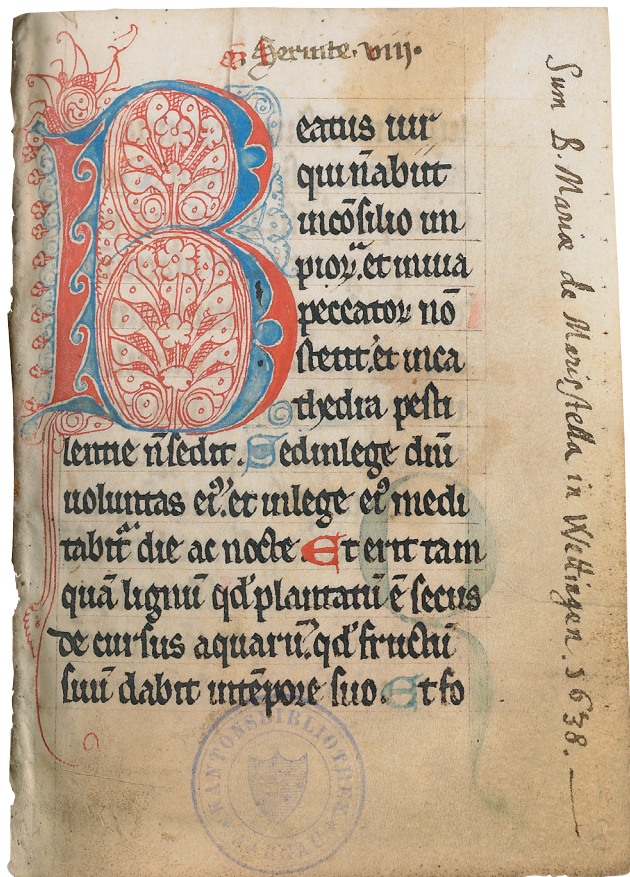 Beatus uir
qui n̄ abiit
in cōsilio im
pioꝝ. et in uia
peccatoꝝ nō
stetit. et in ca
thedra pesti
lentie n̄ sedit. Sed in lege dn̄i
uoluntas eiꝰ. et in lege eiꝰ medi
tabit᷑ die ac nocte Et erit tam
quā lignū qd̛ plantatū ē secus
decursus aquarū. qd̛ fructū
suū dabit in tēpore suo. Et fo
Sum B. Mariæ de Maristella in Wettingen. 1638.
KANTONSBIBLIOTHEK
AARGAU